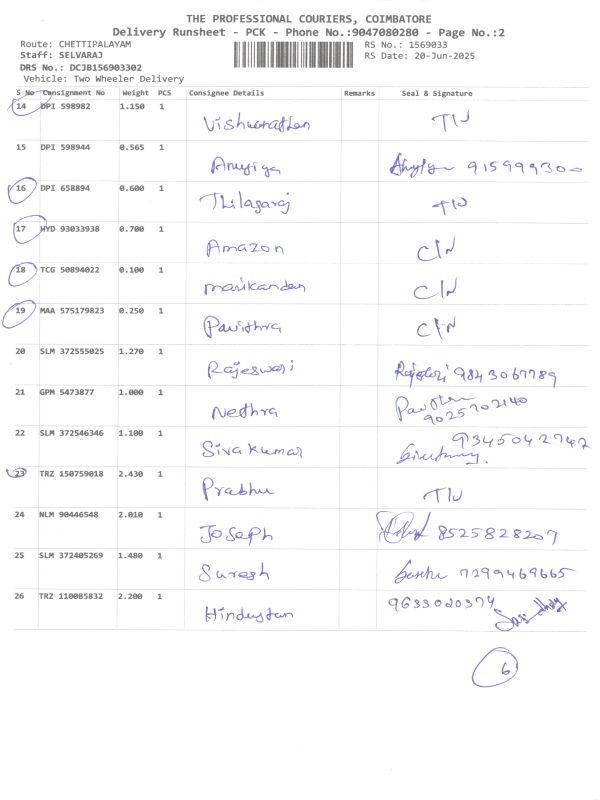 THE PROFESSIONAL COURIERS, COIMBATORE
Delivery Runsheet - PCK - Phone No.:9047080280 - Page No.:2
Route: CHETTIPALAYAM RS No.: 1569033
Staff: SELVARAJ RS Date: 20-Jun-2025
DRS No.: DCJB156903302
Vehicle: Two Wheeler Delivery
S No Consignment No Weight PCS Consignee Details Remarks Seal & Signature
14 DPI 598982 1.150 1
TIJ
15 DPI 598944 0.565 1
915999300
16 DPI 658894 0.600 1
Thilagaraj TIJ
17 HYD 93033938 0.700 1
Amazon C/N
18 TCG 50894022 0.100 1
Manikandan C/N
19 MAA 575179823 0.250 1
Pavithra C/N
20 SLM 372555025 1.270 1
Rajeswari 9843067789
21 GPM 5473877 1.000 1
Nethra
9025702140
22 SLM 372546346 1.100 1
9345042742
Sivakumar
23 TRZ 150759018 2.430 1
Prabhu TIJ
24 NLM 90446548 2.010 1
Joseph 8525828207
25 SLM 372405269 1.480 1
Suresh 7299469665
26 TRZ 110085832 2.200 1
9633020374
Hindustan
6